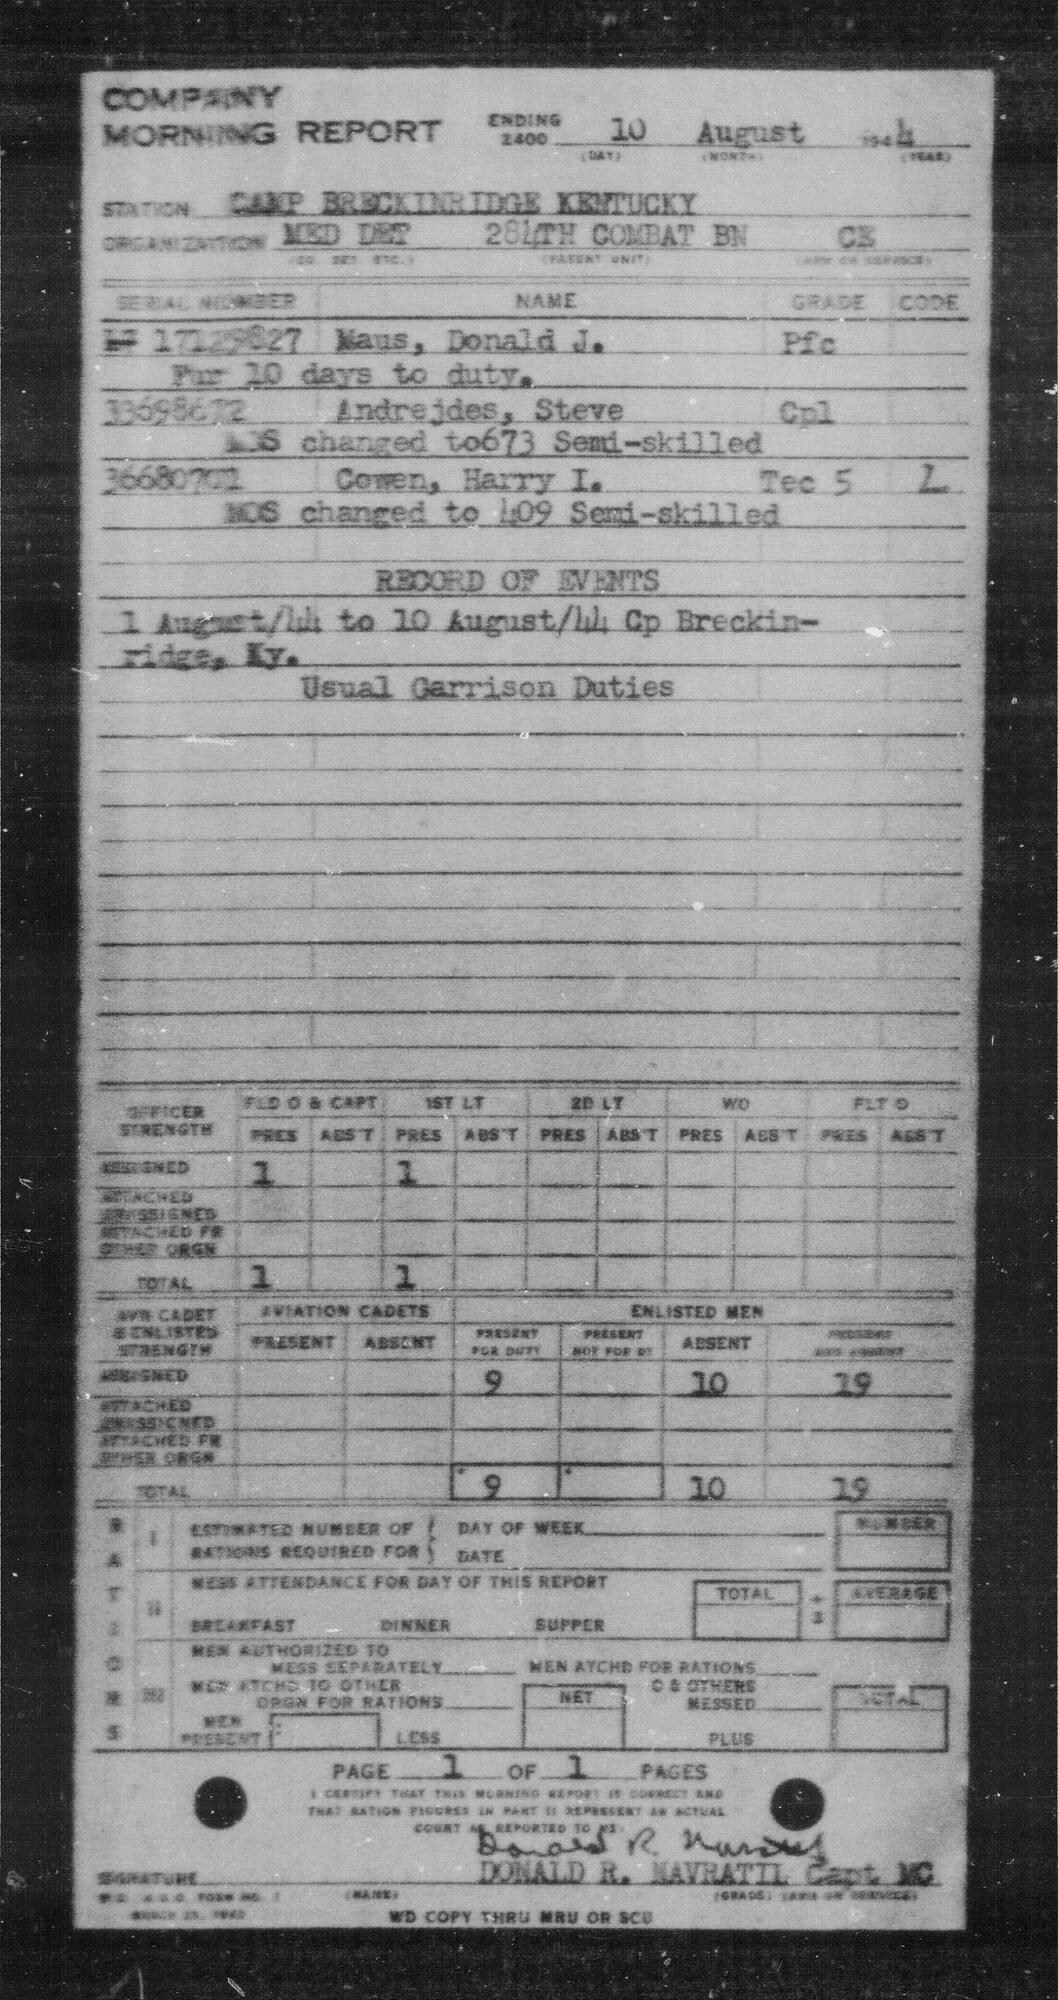 COMPANY
MORNING REPORT ENDING 2400 10 August 1944
(DAY) (MONTH) (YEAR)
STATION CAMP BRECKINRIDGE KENTUCKY
ORGANIZATION MED DET 284TH COMBAT BN CE
(CO. DET. ETC.) (PARENT UNIT) (ARM OR SERVICE)
SERIAL NUMBER NAME GRADE CODE
17129827 Maus, Donald J. Pfc
Fur 10 days to duty.
33698672 Andrejdes, Steve Cpl
MOS changed to673 Semi-skilled
36680702 Cowen, Harry I. Tec 5 L
MOS changed to 409 Semi-skilled
RECORD OF EVENTS
1 August/44 to 10 August/44 Cp Breckin-
ridge, Ky.
Usual Garrison Duties
OFFICER STRENGTH FLD O & CAPT 1ST LT 2D LT WO FLT O
PRES ABS'T PRES ABS'T PRES ABS'T PRES ABS'T PRES ABS'T
ASSIGNED 1 1
ATTACHED
UNASSIGNED
ATTACHED FR
OTHER ORGN
TOTAL 1 1
AVN CADET & ENLISTED STRENGTH AVIATION CADETS ENLISTED MEN
PRESENT ABSENT PRESENT FOR DUTY PRESENT NOT FOR DY ABSENT PRESENT AND ABSENT
ASSIGNED 9 10 19
ATTACHED
UNASSIGNED
ATTACHED FR
OTHER ORGN
TOTAL 9 10 19
RATIONS
I ESTIMATED NUMBER OF DAY OF WEEK NUMBER
RATIONS REQUIRED FOR DATE
II MESS ATTENDANCE FOR DAY OF THIS REPORT TOTAL ÷ 3 AVERAGE
BREAKFAST DINNER SUPPER
III MEN AUTHORIZED TO
MESS SEPARATELY MEN ATCHD FOR RATIONS
MEN ATCHD TO OTHER ORGN FOR RATIONS NET O & OTHERS MESSED TOTAL
MEN PRESENT LESS PLUS
PAGE 1 OF 1 PAGES
I CERTIFY THAT THIS MORNING REPORT IS CORRECT AND
THAT RATION FIGURES IN PART II REPRESENT AN ACTUAL
COUNT AS REPORTED TO ME:
Donald R. Navratil
SIGNATURE DONALD R. NAVRATIL Capt MC
W.D. A.G.O. FORM NO. 1 (NAME) (GRADE) (ARM OR SERVICE)
WD COPY THRU MRU OR SCU